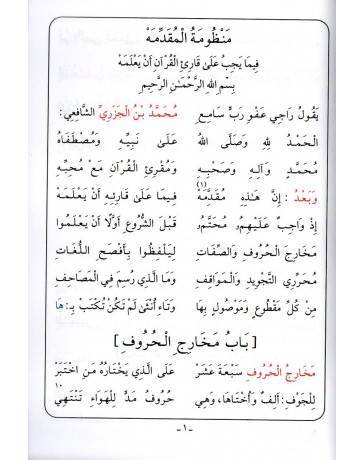 مَنْظُومَةُ الْمُقَدِّمَهْ
فِيمَا يَجِبُ عَلَىٰ قَارِئِ الْقُرْآنِ أَنْ يَعْلَمَهْ
بِسْمِ اللهِ الرَّحْمَٰنِ الرَّحِيمِ
يَقُولُ رَاجِي عَفْوِ رَبٍّ سَامِعِ مُحَمَّدُ بْنُ الْجَزَرِيِّ الشَّافِعِي:
الْحَمْدُ لِلهِ وَصَلَّى اللهُ عَلَىٰ نَبِيِّهِ وَمُصْطَفَاهُ
مُحَمَّدٍ وَآلِهِ وَصَحْبِهِ وَمُقْرِئِ الْقُرْآنِ مَعْ مُحِبِّهِ
وَبَعْدُ: إِنَّ هَٰذِهِ مُقَدِّمَهْ (١) فِيمَا عَلَىٰ قَارِئِهِ أَنْ يَعْلَمَهْ
إِذْ وَاجِبٌ عَلَيْهِمُ مُحَتَّمُ قَبْلَ الشُّرُوعِ أَوَّلًا أَنْ يَعْلَمُوا
مَخَارِجَ الْحُرُوفِ وَالصِّفَاتِ لِيَلْفِظُوا بِأَفْصَحِ اللُّغَاتِ
مُحَرِّرِي التَّجْوِيدِ وَالْمَوَاقِفِ وَمَا الَّذِي رُسِمَ فِي الْمَصَاحِفِ
مِنْ كُلِّ مَقْطُوعٍ وَمَوْصُولٍ بِهَا وَتَاءِ أُنْثَىٰ لَمْ تَكُنْ تُكْتَبْ بِـ: هَا
[بَابُ مَخَارِجِ الْحُرُوفِ]
مَخَارِجُ الْحُرُوفِ سَبْعَةَ عَشَرْ عَلَى الَّذِي يَخْتَارُهُ مَنِ اخْتَبَرْ
لِلْجَوْفِ: أَلِفٌ وَأُخْتَاهَا، وَهِي حُرُوفُ مَدٍّ لِلْهَوَاءِ تَنْتَهِي ١٠
-١-